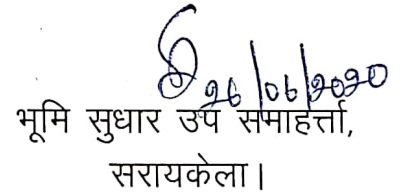 26/06/2020
भूमि सुधार उप समाहर्त्ता,
सरायकेला।